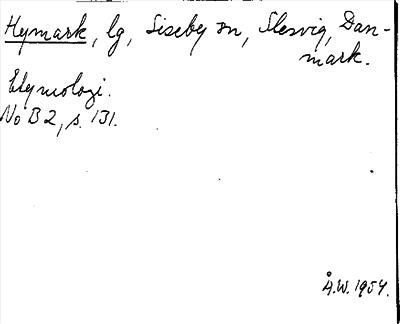 Hymark, lg, Siseby sn, Slesvig, Dan-
mark.
Etymologi.
No B 2, s. 131.
Å.W. 1954.